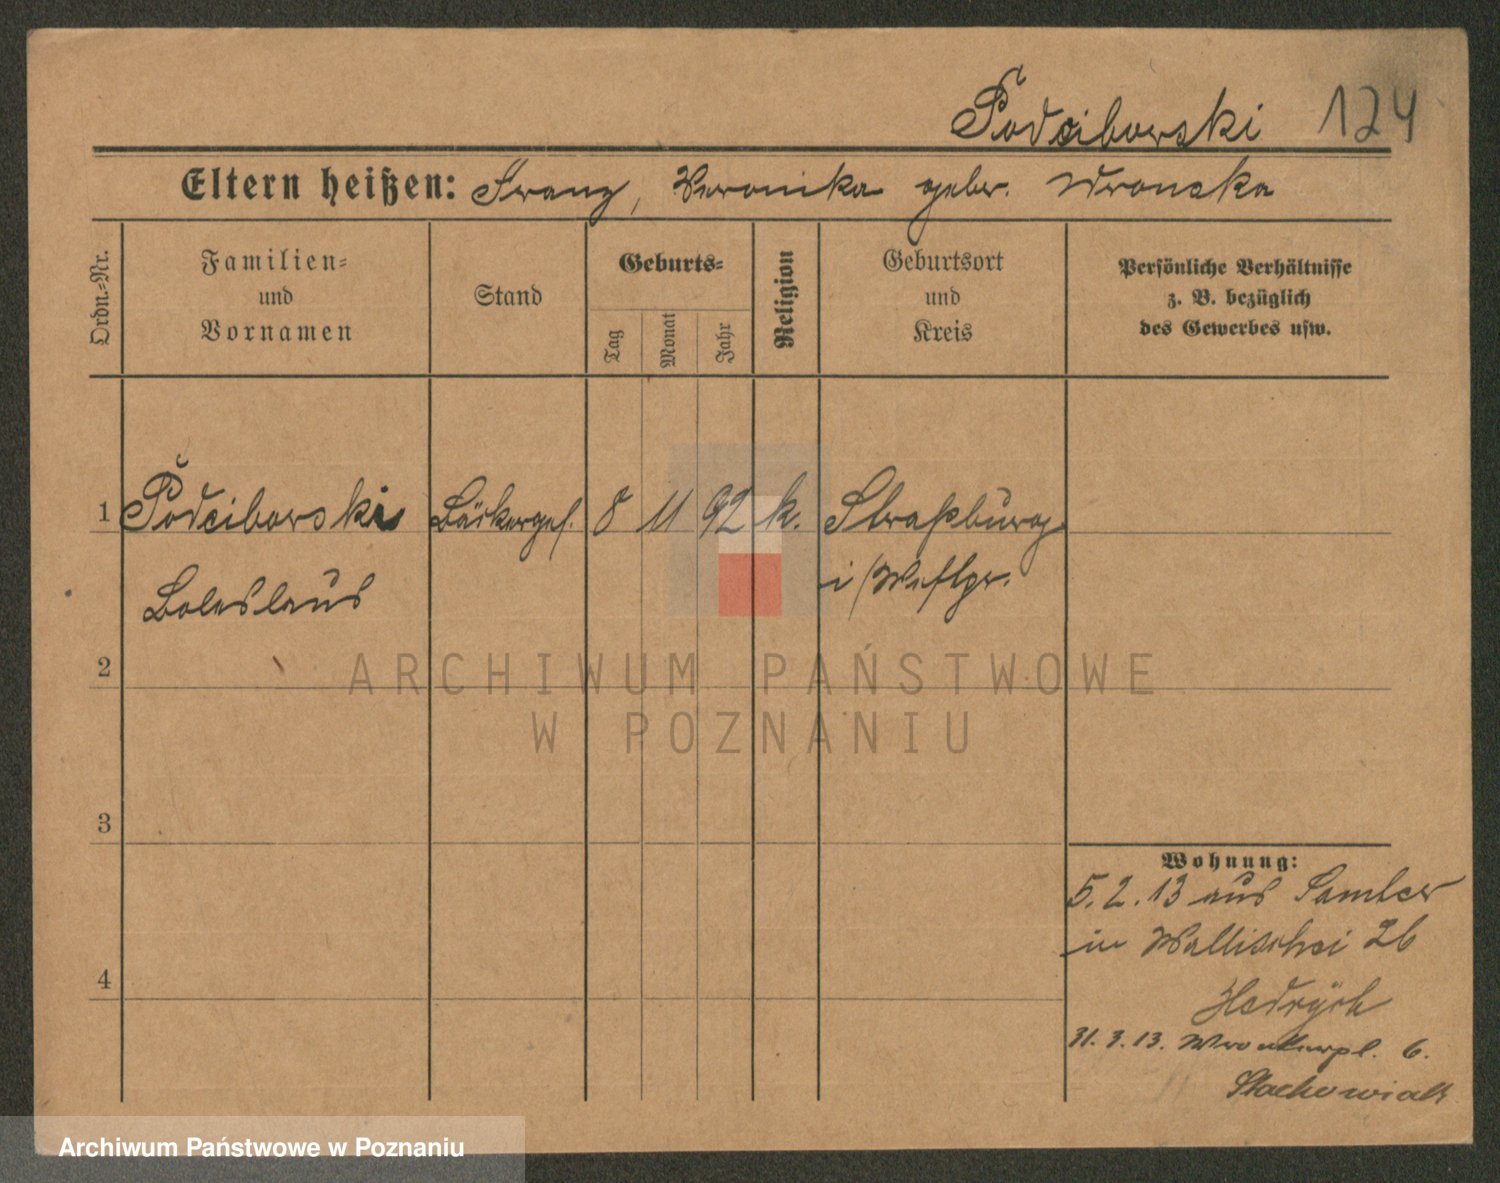 Podciborski 124
Eltern heißen: Franz, Veronika gebr. Wronska
Ordn.-Nr.
Familien-
und
Vornamen
Stand
Geburts-
Tag
Monat
Jahr
Religion
Geburtsort
und
Kreis
Persönliche Verhältnisse
z. B. bezüglich
des Gewerbes usw.
1 Podciborski Bäckerges. 8 11 92 k. Straßburg
Boleslaus i/Westpr.
2
ARCHIWUM PAŃSTWOWE
W POZNANIU
3
Wohnung:
5.2.13 aus Samter
in Wallischei 26
4
31.3.13. Wronkerpl. 6.
Stachowiak
Archiwum Państwowe w Poznaniu